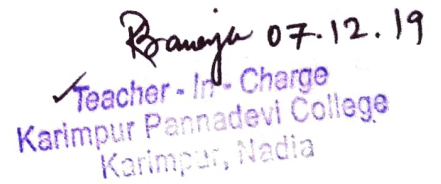 07.12.19
Teacher - In - Charge
Karimpur Pannadevi College
Karimpur, Nadia